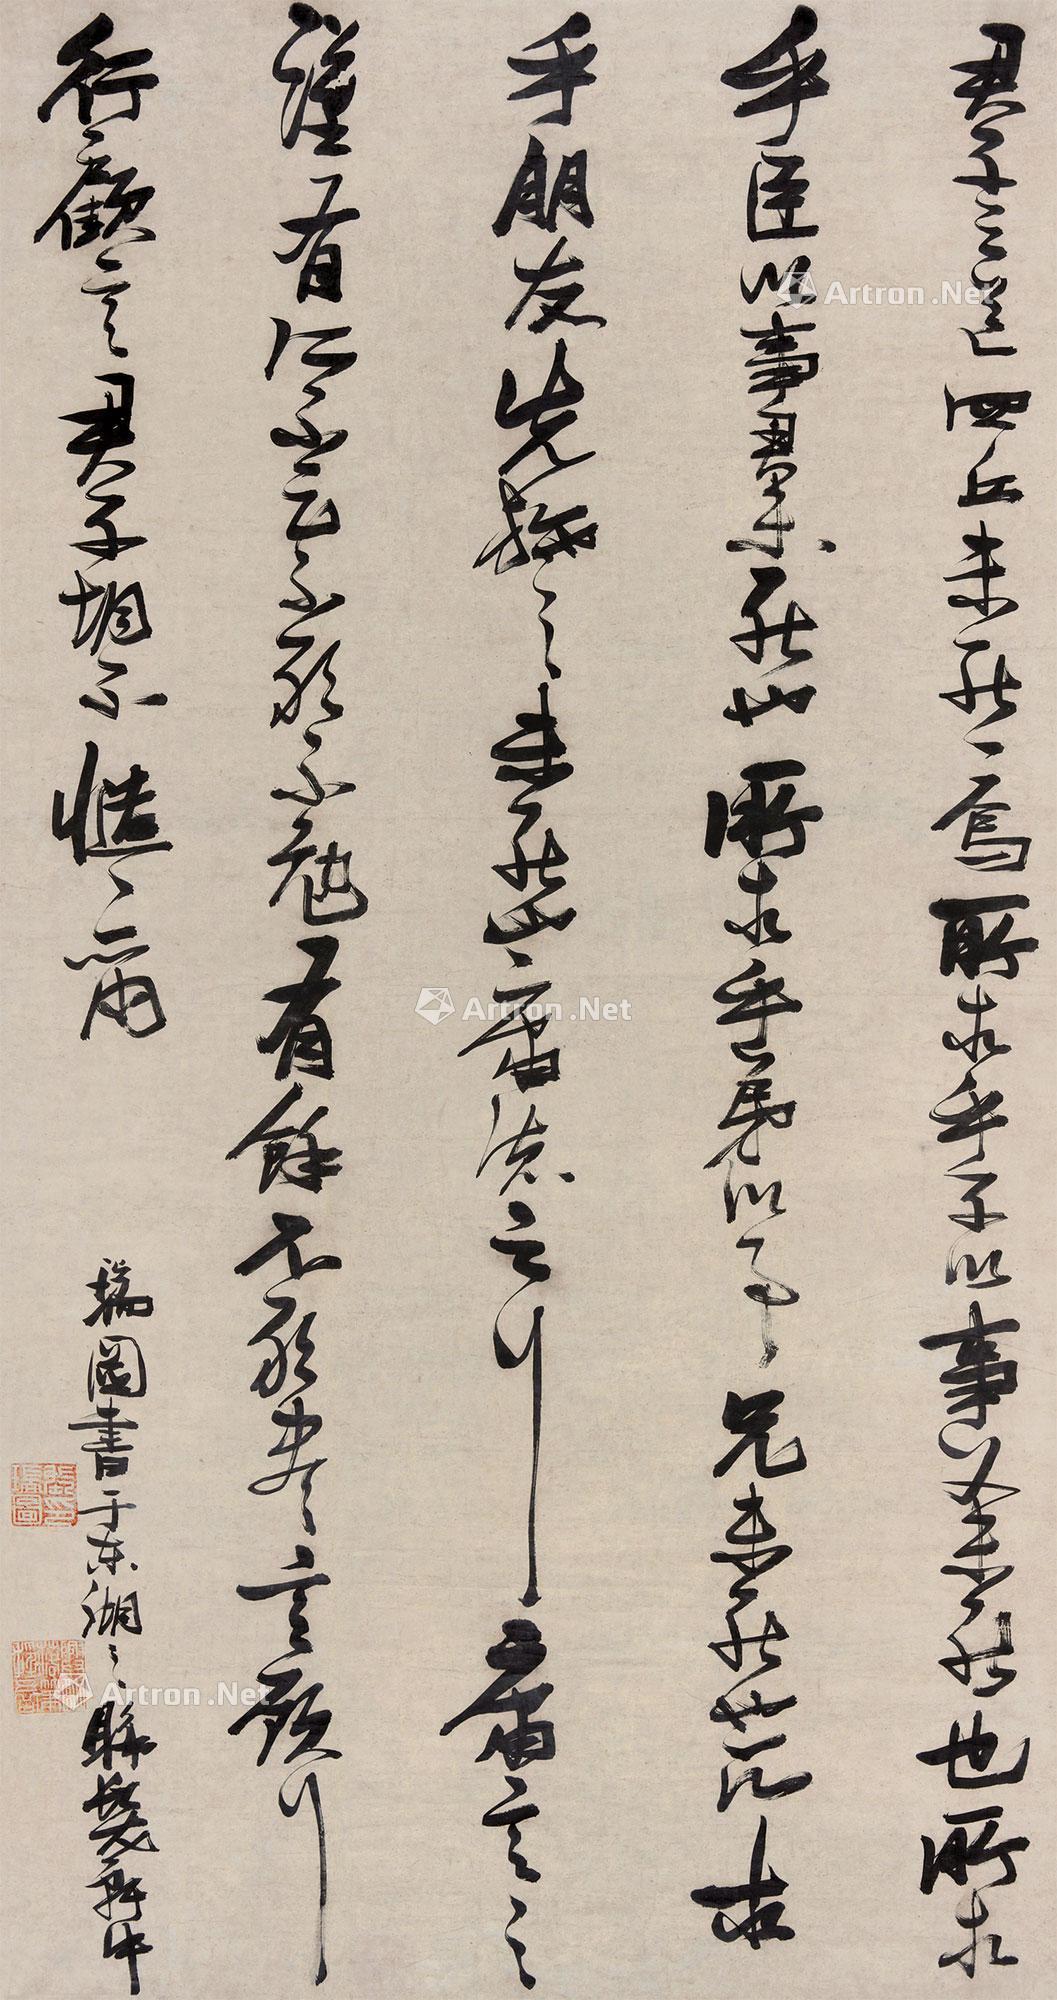 君子之道四丘未能一焉所求乎子以事父未能也所求
乎臣以事君未能也所求乎弟以事兄未能也所求
乎朋友先施之未能也庸德之行庸言之
謹有所不足不敢不勉有餘不敢盡言顧行
行顧言君子胡不慥慥爾
瑞圖書于東湖之聯鷖舟中
Artron.Net
Artron.Net
Artron.Net